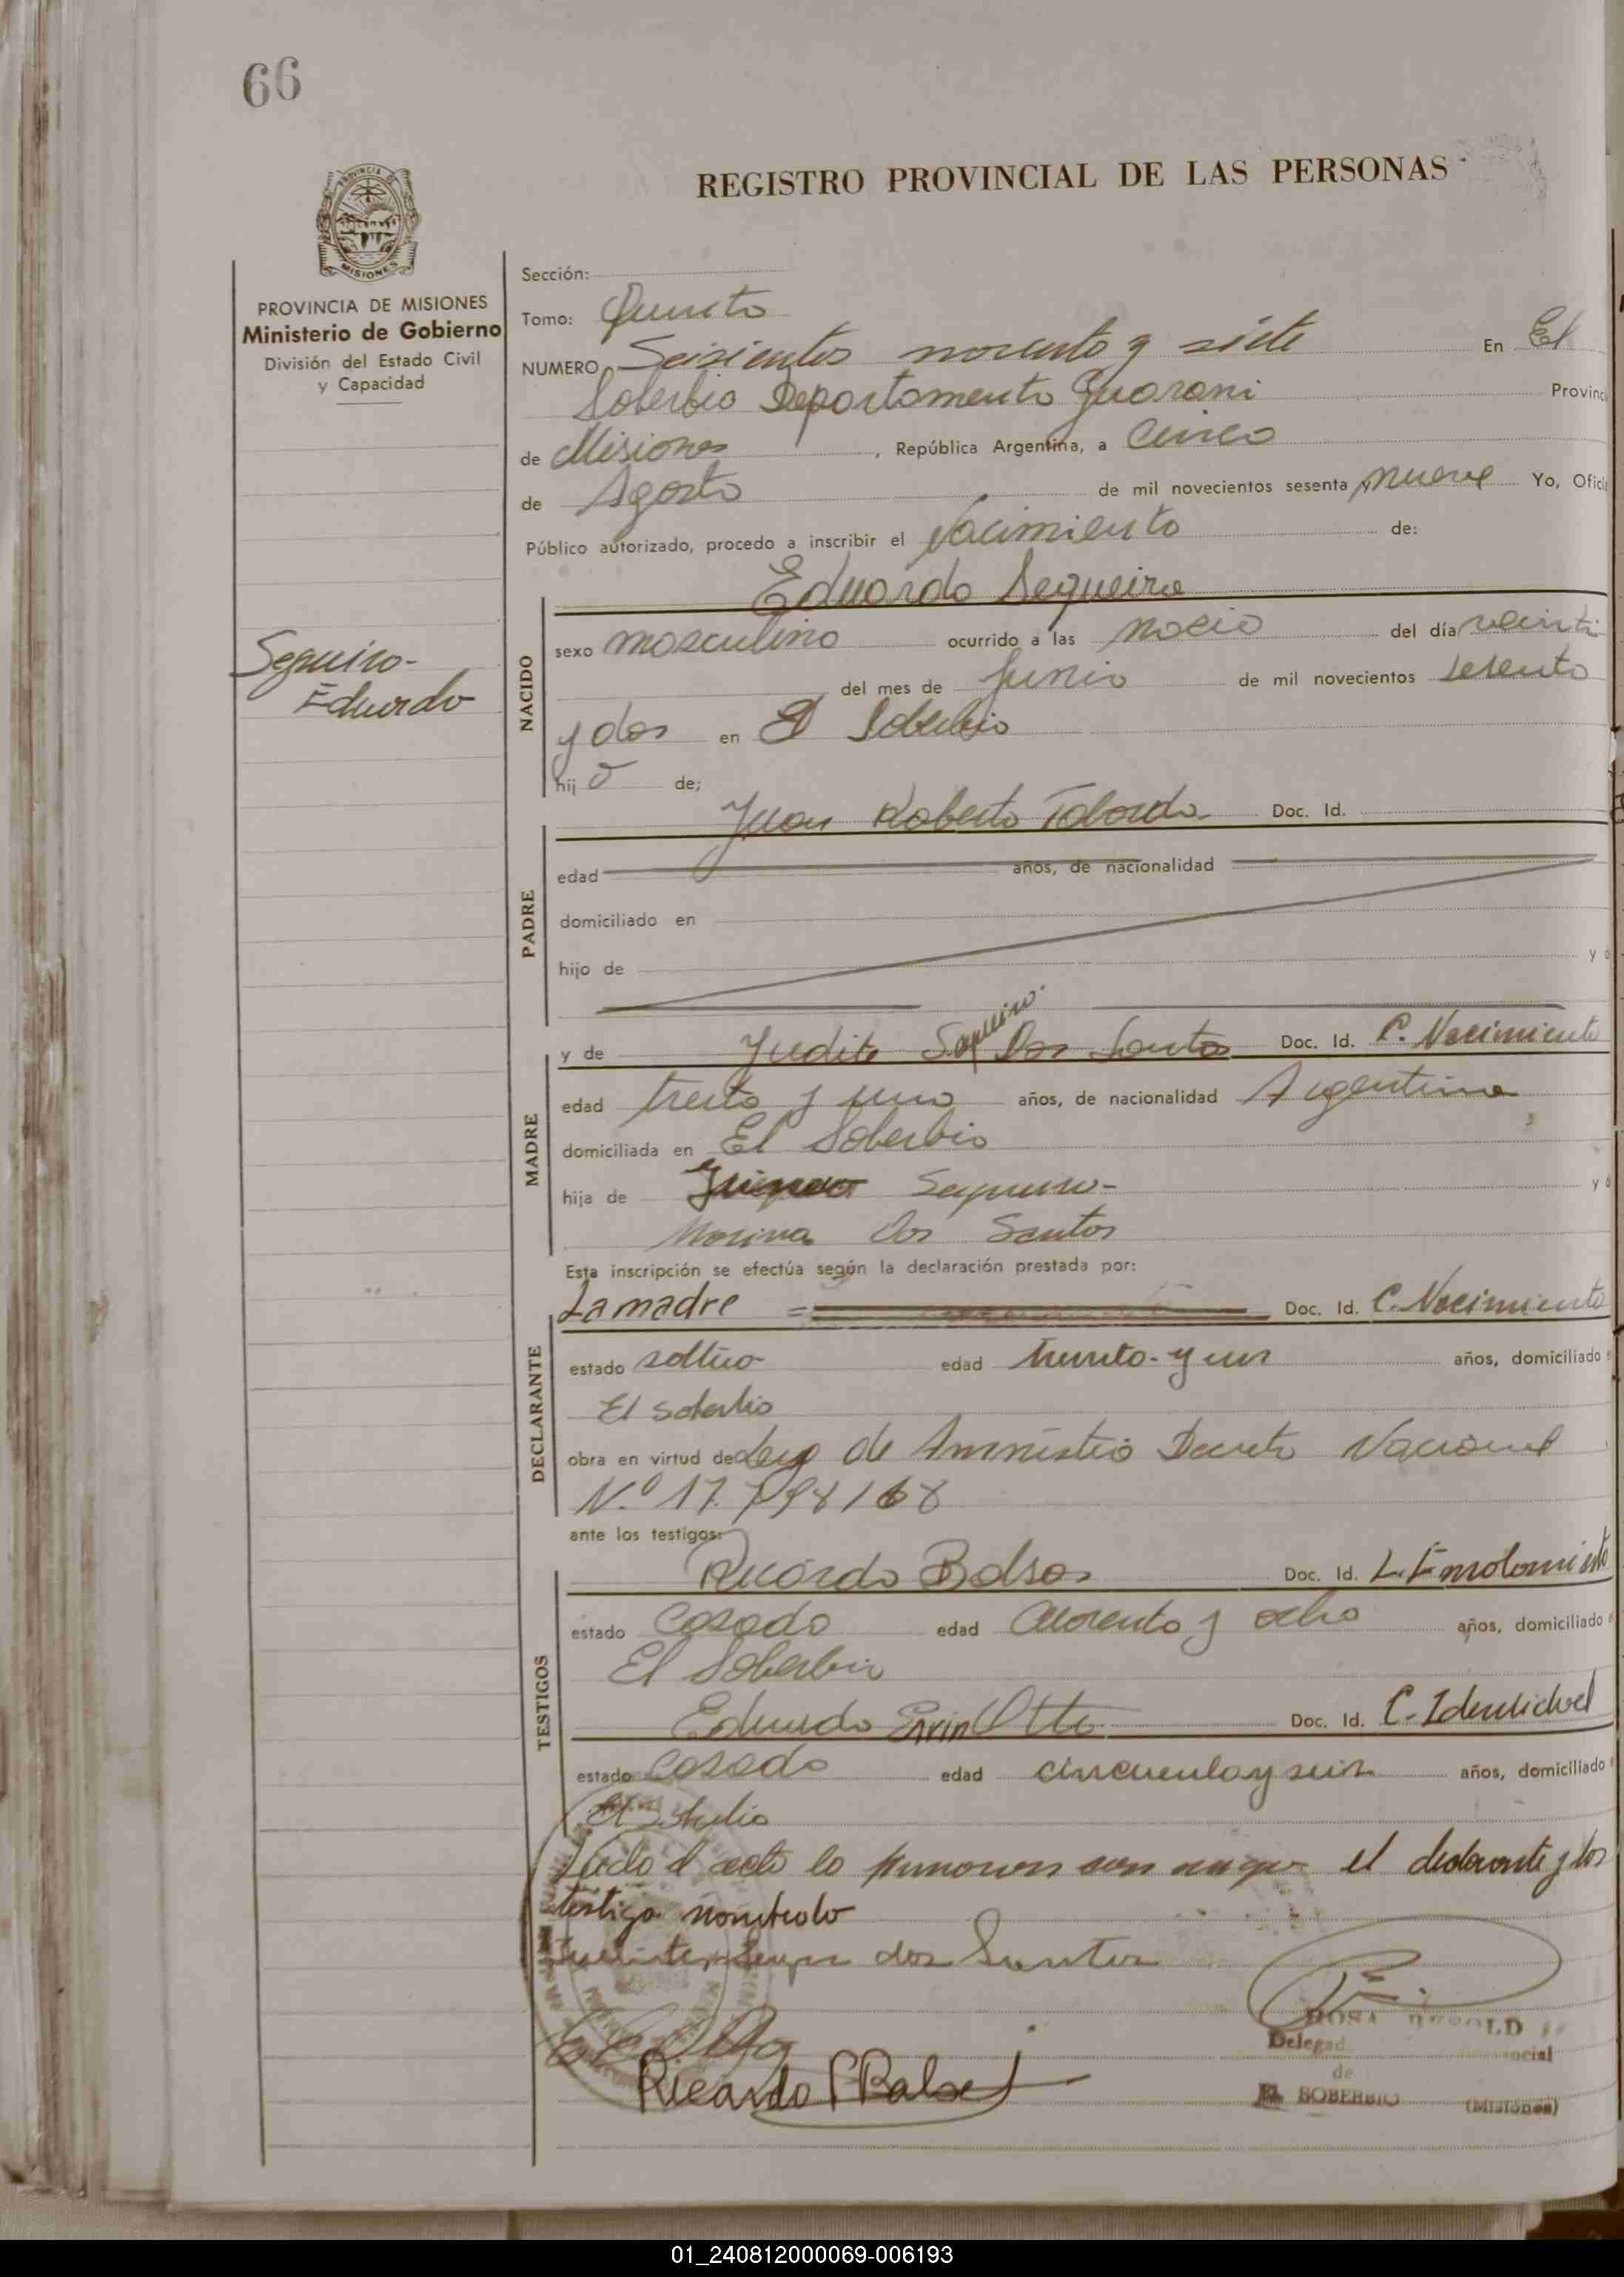 66
REGISTRO PROVINCIAL DE LAS PERSONAS
PROVINCIA DE
MISIONES
PROVINCIA DE MISIONES
Ministerio de Gobierno
División del Estado Civil
y Capacidad
Sequeiro-
Eduardo
Sección:
Tomo: Quinto
NUMERO Seisientos noventa y siete En El
Soberbio Departamento Guarani Provinc
de Misiones, República Argentina, a Cinco
de Agosto de mil novecientos sesenta y nueve Yo, Ofici
Público autorizado, procedo a inscribir el Nacimiento de:
Eduardo Sequeira
NACIDO
sexo masculino ocurrido a las del día veinti
del mes de Junio de mil novecientos sesenta
y dos en El Soberbio
hij o de;
PADRE
Juan Roberto Taborda Doc. Id.
edad años, de nacionalidad
domiciliado en
hijo de y d
MADRE
Sequeiro
y de Judite Dos Santos Doc. Id. C. Nacimiento
edad treita y uno años, de nacionalidad Argentina
domiciliada en El Soberbio
hija de Sequeiro- y d
Dos Santos
Esta inscripción se efectúa según la declaración prestada por:
DECLARANTE
La madre = Doc. Id. C. Nacimiento
estado edad treinta y un años, domiciliado e
El Soberbio
obra en virtud de Ley de Amnistia Decreto Nacional
N.º 17.798/68
ante los testigos:
TESTIGOS
Ricardo Doc. Id. L. Enrolamiento
estado Casado edad Cuarenta y ocho años, domiciliado e
El Soberbio
Eduardo Ervin Otto Doc. Id. C. Identidad
estado Casado edad cincuenta y seis años, domiciliado e
El
el acto lo el declarante y los
testigo
dos Santos
Ricardo
ROSA
Delegad
de
EL SOBERBIO (Misiones)
01_240812000069-006193